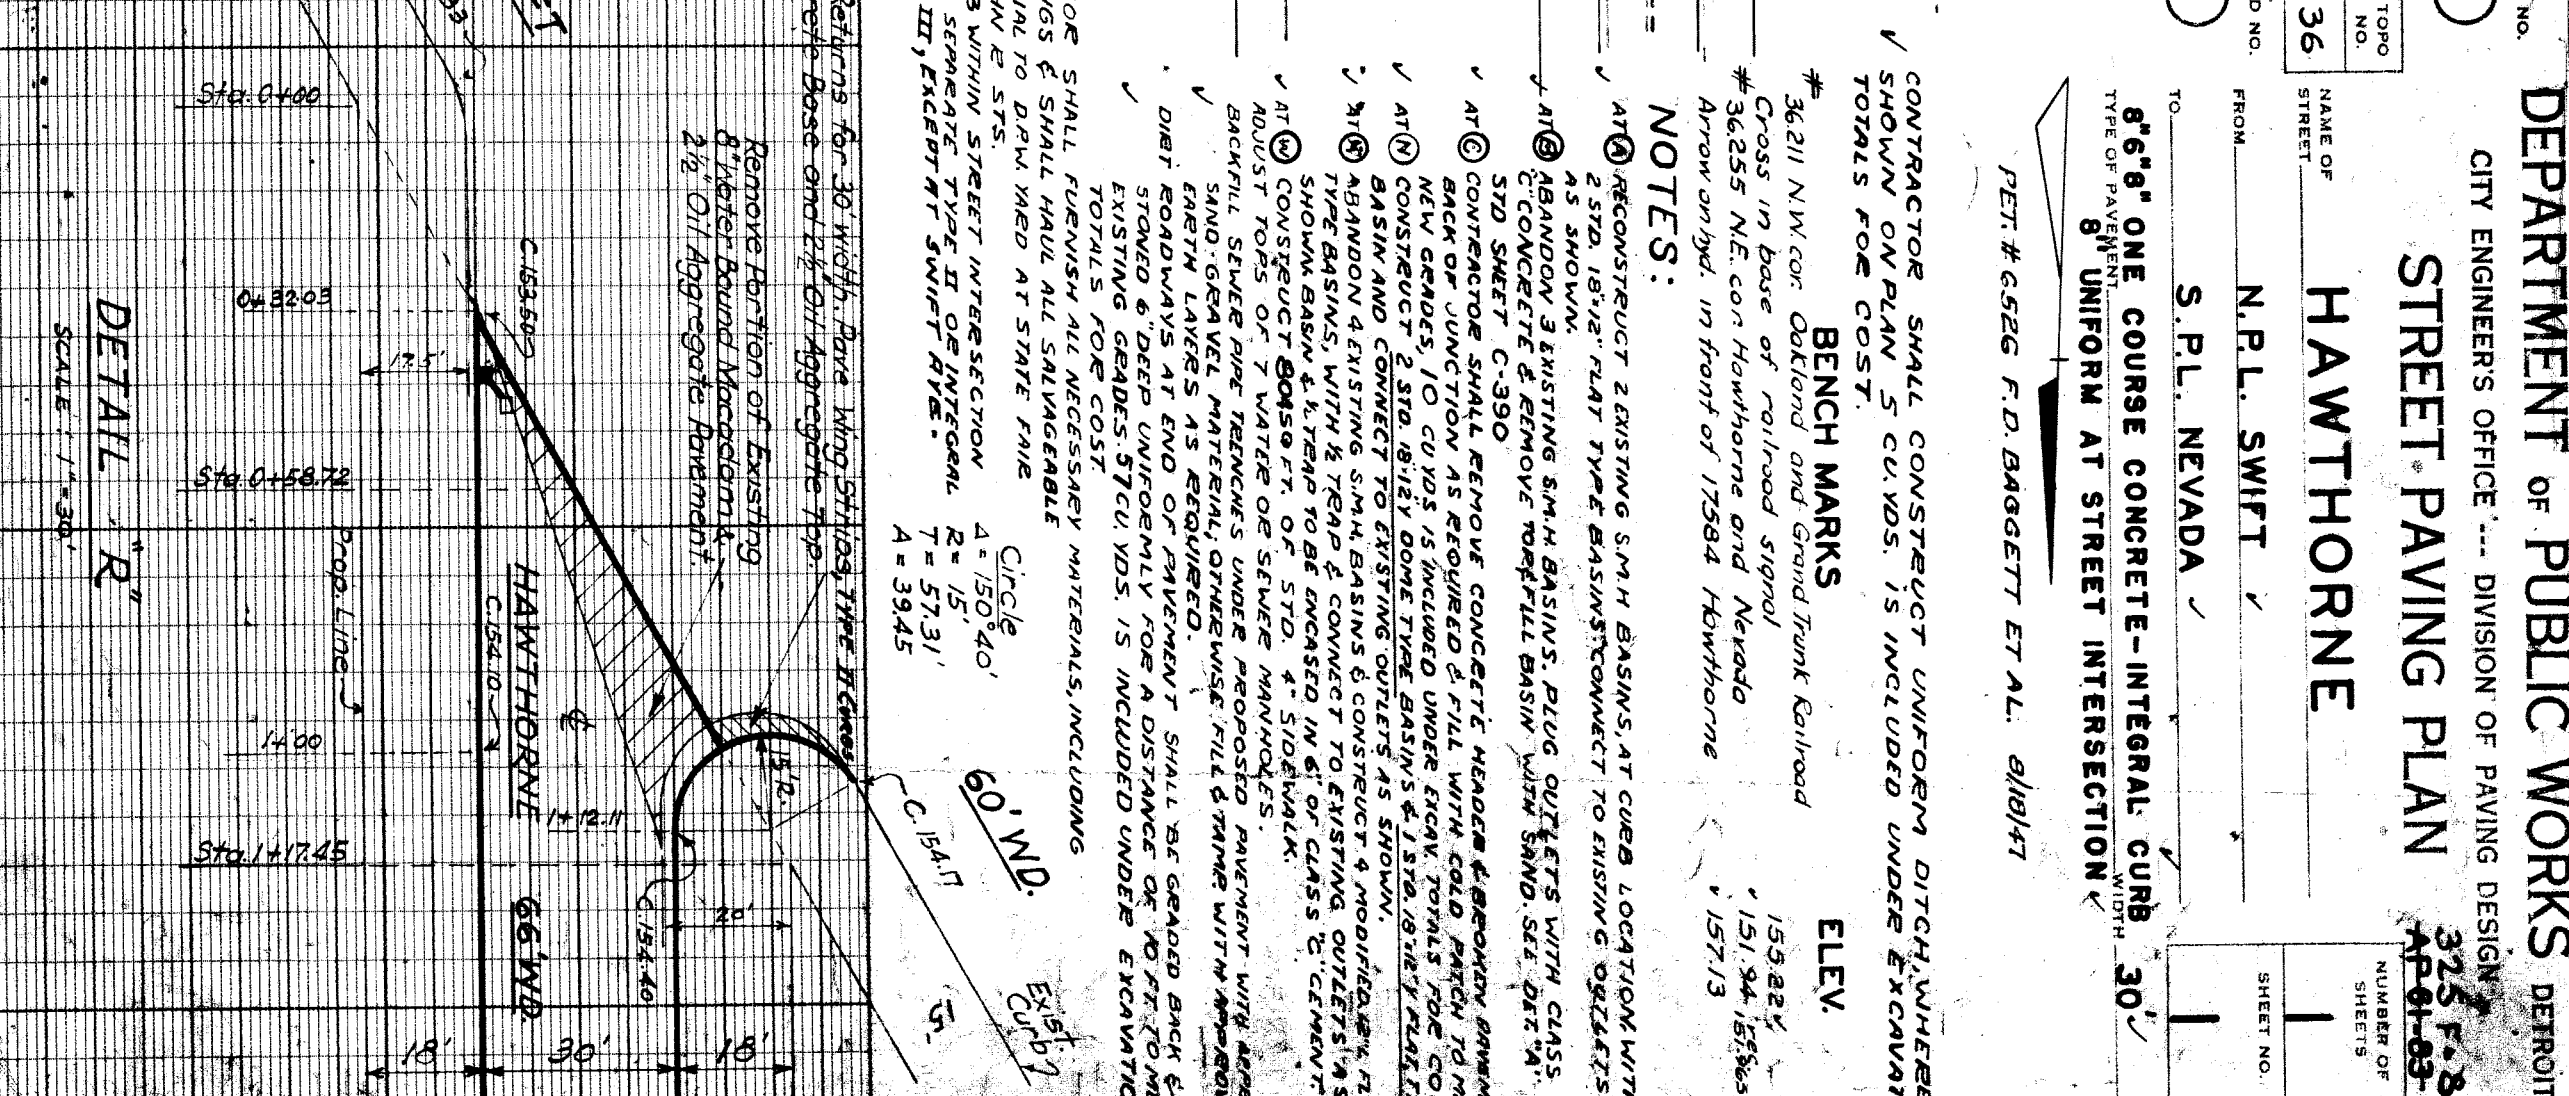 DEPARTMENT OF PUBLIC WORKS DETROIT
CITY ENGINEER'S OFFICE --- DIVISION OF PAVING DESIGN
STREET PAVING PLAN
325 F-8
AP-61-83
NO.
TOPO NO.
36
D NO.
NAME OF STREET
HAWTHORNE
FROM
N.P.L. SWIFT ✓
TO
S.P.L. NEVADA ✓
NUMBER OF SHEETS
1
SHEET NO.
1
8"6"8" ONE COURSE CONCRETE-INTEGRAL CURB
TYPE OF PAVEMENT
8" UNIFORM AT STREET INTERSECTION ✓
WIDTH 30' ✓
PET. # 6526 F.D. BAGGETT ET AL. 8/18/47
✓ CONTRACTOR SHALL CONSTRUCT UNIFORM DITCH, WHERE
SHOWN ON PLAN 5 CU. YDS. IS INCLUDED UNDER EXCAVAT
TOTALS FOR COST.
BENCH MARKS
ELEV.
# 36211 N.W. cor. Oakland and Grand Trunk Railroad
Cross in base of railroad signal
155.22 ✓
# 36255 N.E. cor. Hawthorne and Nevada
✓ 151.94
Arrow on hyd. in front of 17584 Hawthorne
✓ 157.13
NOTES:
✓ AT A RECONSTRUCT 2 EXISTING S.M.H BASINS, AT CURB LOCATION, WITH
2 STD. 18"-12" FLAT TYPE BASINS CONNECT TO EXISTING OUTLETS
AS SHOWN.
✓ AT B ABANDON 3 EXISTING S.M.H BASINS. PLUG OUTLETS WITH CLASS
"C" CONCRETE & REMOVE TOP & FILL BASIN WITH SAND. SEE DET. "A"
STD SHEET C-390
✓ AT C CONTRACTOR SHALL REMOVE CONCRETE HEADER & BROKEN PAVEM
BACK OF JUNCTION AS REQUIRED & FILL WITH COLD PATCH TO M
NEW GRADES, 10 CU YDS IS INCLUDED UNDER EXCAV. TOTALS FOR CO
✓ AT N CONSTRUCT 2 STD. 18"-12" DOME TYPE BASINS & 1 STD. 18"-12" FLAT T
BASIN AND CONNECT TO EXISTING OUTLETS AS SHOWN.
ABANDON 4 EXISTING S.M.H. BASINS & CONSTRUCT 4 MODIFIED 12" FL
TYPE BASINS, WITH ½ TRAP & CONNECT TO EXISTING OUTLETS AS
SHOWN. BASIN & ½ TRAP TO BE ENCASED IN 6" OF CLASS "C" CEMENT
✓ AT W CONSTRUCT 8045 SQ FT. OF STD. 4" SIDEWALK.
ADJUST TOPS OF 7 WATER OR SEWER MANHOLES.
BACKFILL SEWER PIPE TRENCHES UNDER PROPOSED PAVEMENT WITH APPR
SAND-GRAVEL MATERIAL, OTHERWISE FILL & TAMP WITH APPROV
EARTH LAYERS AS REQUIRED.
✓ DIRT ROADWAYS AT END OF PAVEMENT SHALL BE GRADED BACK &
STONED 6" DEEP UNIFORMLY FOR A DISTANCE OF 10 FT. TO M
EXISTING GRADES. 57 CU. YDS. IS INCLUDED UNDER EXCAVATIO
TOTALS FOR COST
OR SHALL FURNISH ALL NECESSARY MATERIALS, INCLUDING
NGS & SHALL HAUL ALL SALVAGEABLE
IAL TO D.P.W. YARD AT STATE FAIR
HN R STS.
B WITHIN STREET INTERSECTION
SEPARATE TYPE II OR INTEGRAL
III, EXCEPT AT SWIFT AVE.
Circle
Δ = 150°40'
R = 15'
T = 57.31'
A = 39.45
60' WD.
C. 154.17
Exist. Curb
Returns for 30' width. Pave Wing Strips, TYPE II CURB
rete Base and 2½" Oil Aggregate Top.
Remove Portion of Existing
8" Water Bound Macadam &
2½" Oil Aggregate Pavement.
15' R.
20'
C. 154.40
C. 153.50
HAWTHORNE 66' WD.
C. 154.10
℄
1+12.11
17.5'
18'
30'
18'
Prop. Line
Sta. 0+00
0+32.03
Sta. 0+58.72
1+00
Sta. 1+17.45
DETAIL "R"
SCALE: 1" = 30'